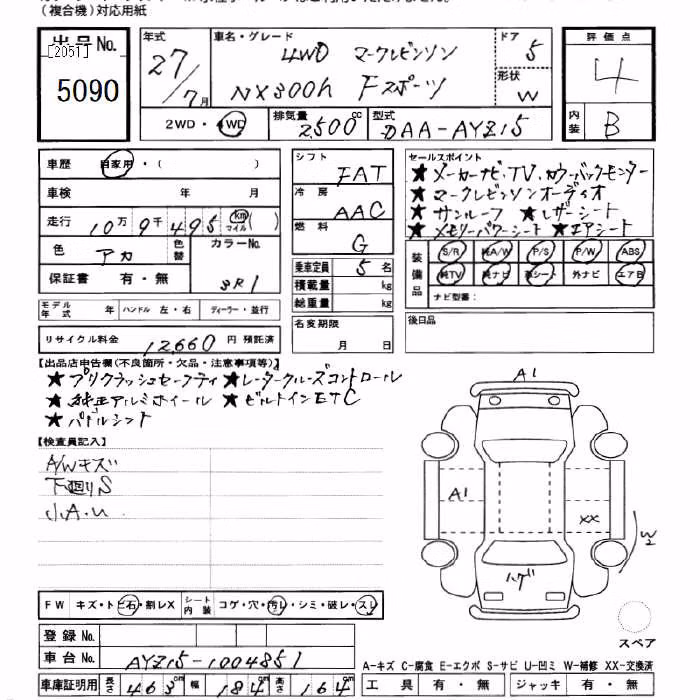 (複合機)対応用紙
出品No.
[2051]
5090
年式
27/7月
車名・グレード
4WD マークレビンソン
NX300h Fスポーツ
ドア
5
形状
W
評価点
4
内装
B
2WD・4WD
排気量
2,500cc
型式
DAA-AYZ15
車歴 自家用・( )
車検 年 月
走行 10万9千495 km マイル ( )
色 アカ 色替
カラーNo.
3R1
保証書 有・無
モデル年式 年 ハンドル 左・右 ディーラー・並行
リサイクル料金 12,660 円 預託済
シフト
FAT
冷房
AAC
燃料
G
乗車定員 5名
積載量 kg
総重量 kg
名変期限
月 日
セールスポイント
★メーカーナビ、TV、カラーバックモニター
★マークレビンソンオーディオ
★サンルーフ ★レザーシート
★メモリーパワーシート ★エアシート
装備品
S/R 純A/W P/S P/W ABS
純TV 純ナビ 革シート 外ナビ エアB
ナビ型番:
後日品
【出品店申告欄(不良箇所・欠品・注意事項等)】
★プリクラッシュセーフティ ★レーダークルーズコントロール
★純正アルミホイール ★ビルトインETC
★パドルシフト
【検査員記入】
A/Wキズ
下廻りS
小A.U
A1
A1
XX
W2
ハゲ
スペア
FW キズ・トビ石・割レX シート内装 コゲ・穴・汚レ・シミ・破レ・スレ
登録No.
車台No. AYZ15-1004851
車庫証明用 長さ 463cm 幅 184cm 高さ 164cm
A-キズ C-腐食 E-エクボ S-サビ U-凹ミ W-補修 XX-交換済
工具 有・無 ジャッキ 有・無